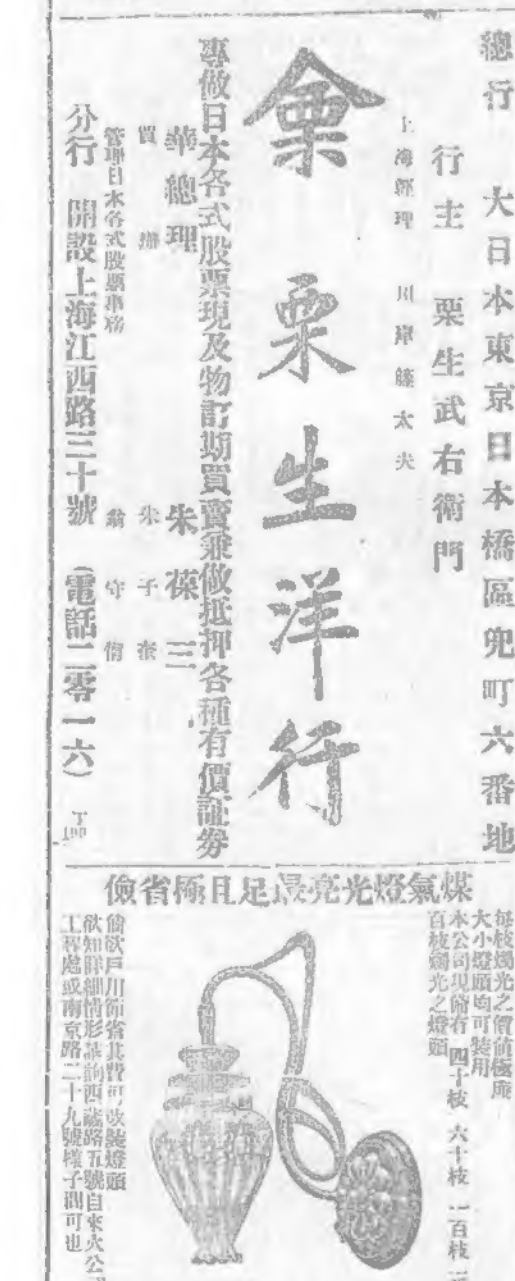 總行 大日本東京日本橋區兜町六番地
行主 栗生武右衛門
上海經理 川岸 太夫
栗生洋行
專做日本各式股票現及物訂期買賣兼做抵押各種有價証劵
華總理 朱葆三
買辦 朱子奎
管理日本各式股票事務 翁守
分行 開設上海江西路三十號 (電話二零一六)
煤氣燈光亮最足且極省儉
每枝燭光之價值極廉
大小燈頭均可裝用
本公司現備有 四十枝 六十枝 一百枝
百枝燭光之燈頭
倘欲戶用節省其費可改裝燈頭
欲知詳細情形請詢西藏路五號自來火公
工程處或南京路二十九號樣子間可也